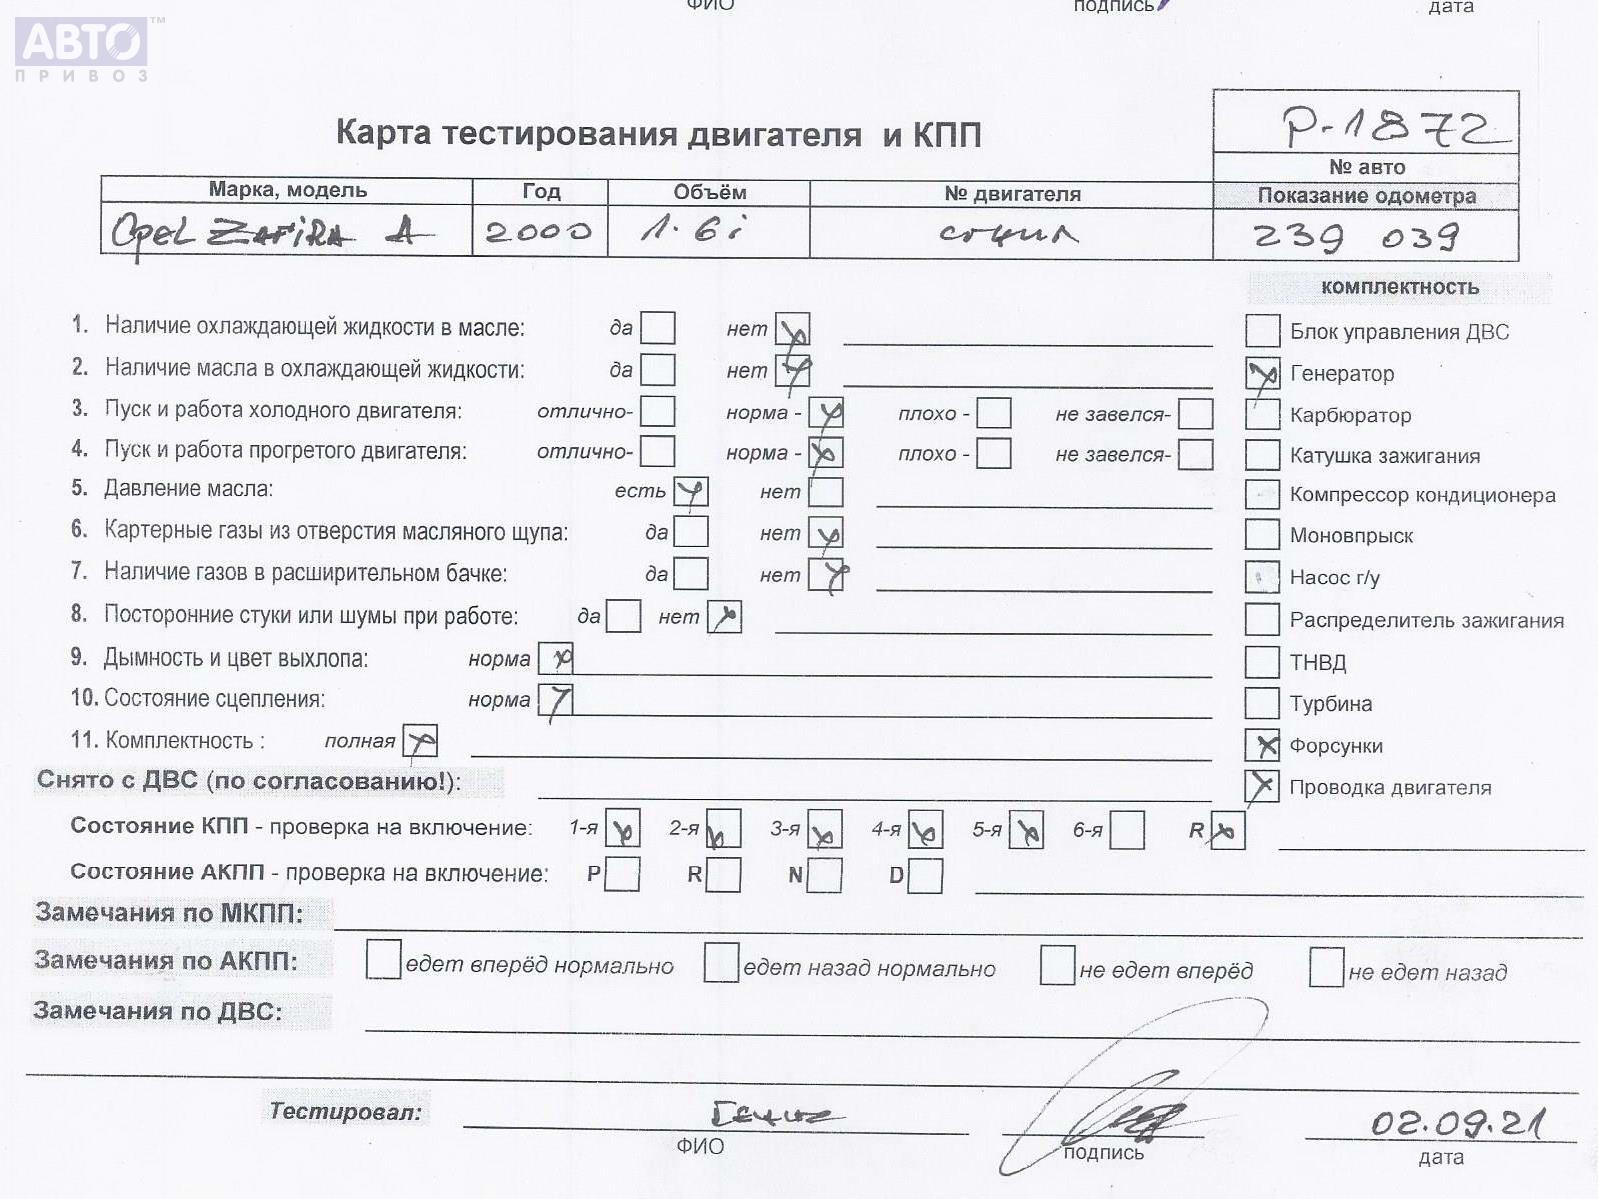 ФИО подпись дата
АВТО™
ПРИВОЗ
Карта тестирования двигателя и КПП
P-1872
№ авто
Марка, модель Год Объём № двигателя Показание одометра
Opel Zafira A 2000 1.6i 239 039
комплектность
1. Наличие охлаждающей жидкости в масле: да нет Блок управления ДВС
2. Наличие масла в охлаждающей жидкости: да нет Генератор
3. Пуск и работа холодного двигателя: отлично- норма - плохо - не завелся- Карбюратор
4. Пуск и работа прогретого двигателя: отлично- норма - плохо - не завелся- Катушка зажигания
5. Давление масла: есть нет Компрессор кондиционера
6. Картерные газы из отверстия масляного щупа: да нет Моновпрыск
7. Наличие газов в расширительном бачке: да нет Насос г/у
8. Посторонние стуки или шумы при работе: да нет Распределитель зажигания
9. Дымность и цвет выхлопа: норма ТНВД
10. Состояние сцепления: норма Турбина
11. Комплектность : полная Форсунки
Снято с ДВС (по согласованию!): Проводка двигателя
Состояние КПП - проверка на включение: 1-я 2-я 3-я 4-я 5-я 6-я R
Состояние АКПП - проверка на включение: P R N D
Замечания по МКПП:
Замечания по АКПП: едет вперёд нормально едет назад нормально не едет вперёд не едет назад
Замечания по ДВС:
Тестировал: 02.09.21
ФИО подпись дата